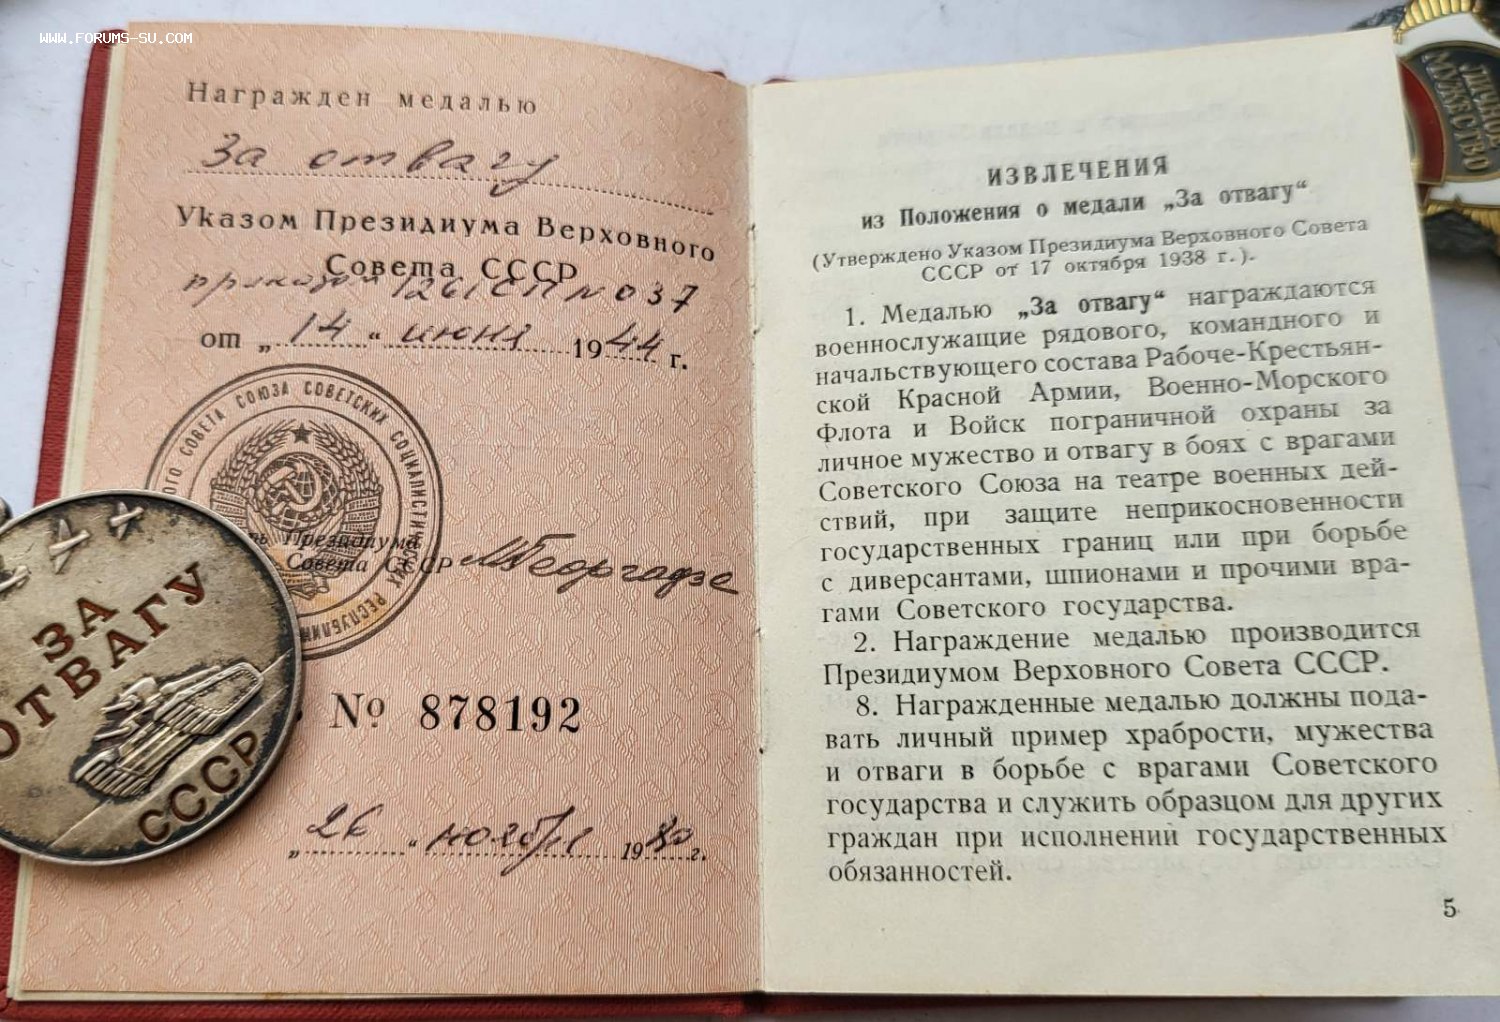 WWW.FORUMS-SU.COM
Награжден медалью
За отвагу
Указом Президиума Верховного
Совета СССР
приказом 1261 СП № 037
от „14“ июня 1944 г.
ОГО СОВЕТА СОЮЗА СОВЕТСКИХ СОЦИАЛИСТИЧЕСКИХ РЕСПУБЛИК
ь Президиума
Совета СССР МГеоргадзе
№ 878192
„26“ ноября 1980 г.
ЗА
ОТВАГУ
СССР
ИЗВЛЕЧЕНИЯ
из Положения о медали „За отвагу“
(Утверждено Указом Президиума Верховного Совета
СССР от 17 октября 1938 г.).
1. Медалью „За отвагу“ награждаются
военнослужащие рядового, командного и
начальствующего состава Рабоче-Крестьян-
ской Красной Армии, Военно-Морского
Флота и Войск пограничной охраны за
личное мужество и отвагу в боях с врагами
Советского Союза на театре военных дей-
ствий, при защите неприкосновенности
государственных границ или при борьбе
с диверсантами, шпионами и прочими вра-
гами Советского государства.
2. Награждение медалью производится
Президиумом Верховного Совета СССР.
8. Награжденные медалью должны пода-
вать личный пример храбрости, мужества
и отваги в борьбе с врагами Советского
государства и служить образцом для других
граждан при исполнении государственных
обязанностей.
5
ЛИЧНОЕ
МУЖЕСТВО